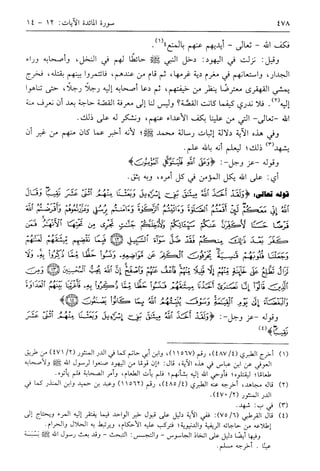 ٤٧٨ سورة المائدة الآيات: ١٢ - ١٤
فكف الله - تعالى - أيديهم عنهم بالمنع(١).
وقيل: نزلت في اليهود: دخل النبي ﷺ حائطًا لهم في النخل، وأصحابه وراء
الجدار، واستعانهم في مغرم دية غرمها، ثم قام من عندهم، فائتمروا بينهم بقتله، فخرج
يمشي القهقرى معترضًا ينظر من خيفتهم، ثم دعا أصحابه إليه رجلاً رجلاً، حتى تناهوا
إليه(٢). فلا ندري كيفما كانت القصة؟ وليس لنا إلى معرفة القصة حاجة بعد أن نعرف منة
الله -تعالى- التي من علينا بكف الأعداء عنهم، ونشكر له على ذلك.
وفي هذه الآية دلالة إثبات رسالة محمد ﷺ؛ لأنه أخبر عما كان منهم من غير أن
يشهد(٣) ذلك؛ ليعلم أنه بالله علم.
وقوله -عز وجل-:
أي: على الله يكل المؤمن في كل أمره، وبه يثق.
قوله تعالى: ﴿وَلَقَدْ أَخَذَ اللَّهُ مِيثَاقَ بَنِي إِسْرَائِيلَ وَبَعَثْنَا مِنْهُمُ اثْنَيْ عَشَرَ نَقِيبًا وَقَالَ
اللَّهُ إِنِّي مَعَكُمْ لَئِنْ أَقَمْتُمُ الصَّلَاةَ وَآتَيْتُمُ الزَّكَاةَ وَآمَنْتُمْ بِرُسُلِي وَعَزَّرْتُمُوهُمْ وَأَقْرَضْتُمُ اللَّهَ
قَرْضًا حَسَنًا لَأُكَفِّرَنَّ عَنْكُمْ سَيِّئَاتِكُمْ وَلَأُدْخِلَنَّكُمْ جَنَّاتٍ تَجْرِي مِنْ تَحْتِهَا الْأَنْهَارُ فَمَنْ
كَفَرَ بَعْدَ ذَلِكَ مِنْكُمْ فَقَدْ ضَلَّ سَوَاءَ السَّبِيلِ ۝ فَبِمَا نَقْضِهِمْ مِيثَاقَهُمْ لَعَنَّاهُمْ
وَجَعَلْنَا قُلُوبَهُمْ قَاسِيَةً يُحَرِّفُونَ الْكَلِمَ عَنْ مَوَاضِعِهِ وَنَسُوا حَظًّا مِمَّا ذُكِّرُوا بِهِ وَلَا
تَزَالُ تَطَّلِعُ عَلَى خَائِنَةٍ مِنْهُمْ إِلَّا قَلِيلًا مِنْهُمْ فَاعْفُ عَنْهُمْ وَاصْفَحْ إِنَّ اللَّهَ يُحِبُّ الْمُحْسِنِينَ ۝ وَمِنَ
الَّذِينَ قَالُوا إِنَّا نَصَارَى أَخَذْنَا مِيثَاقَهُمْ فَنَسُوا حَظًّا مِمَّا ذُكِّرُوا بِهِ فَأَغْرَيْنَا بَيْنَهُمُ الْعَدَاوَةَ
وَالْبَغْضَاءَ إِلَى يَوْمِ الْقِيَامَةِ وَسَوْفَ يُنَبِّئُهُمُ اللَّهُ بِمَا كَانُوا يَصْنَعُونَ ۝﴾
وقوله -عز وجل-: ﴿وَلَقَدْ أَخَذَ اللَّهُ مِيثَاقَ بَنِي إِسْرَائِيلَ وَبَعَثْنَا مِنْهُمُ اثْنَيْ عَشَرَ
نَقِيبًا﴾(٤)
(١) أخرج الطبري (٤٨٧/٤)، رقم (١١٥٦٧)، وابن أبي حاتم كما في الدر المنثور (٤٧١/٢) من طريق
العوفي عن ابن عباس في هذه الآية، قال: «إن قومًا من اليهود صنعوا لرسول الله ﷺ ولأصحابه
طعامًا؛ ليقتلوه؛ فأوحى الله إليه بشأنهم؛ فلم يأت الطعام، وأمر أصحابه فلم يأتوه.
(٢) قاله مجاهد، أخرجه عنه الطبري (٤٨٥/٤) رقم (١١٥٦٢) وعبد بن حميد وابن المنذر كما في
الدر المنثور (٤٧٠/٢).
(٣) في ب: شهد.
(٤) قال القرطبي (٧٥/٦): ففي الآية دليل على قبول خبر الواحد فيما يفتقر إليه المرء ويحتاج إلى
إطلاعه من حاجاته الدينية والدنيوية؛ فتركب عليه الأحكام، ويرتبط به الحلال والحرام.
وفيها أيضًا دليل على اتخاذ الجاسوس - والتجسس: التبحث - وقد بعث رسول الله ﷺ بسبسة
عينًا. أخرجه مسلم.